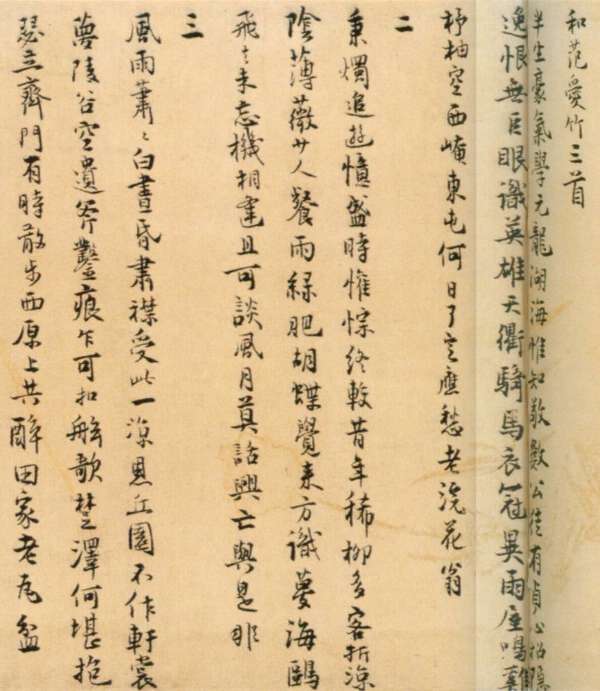 和范愛竹三首
半生豪氣學元龍湖海惟知敬數公佳有貞心招隱
逸恨無巨眼識英雄天衢騎馬衣冠異雨屋鳴雞
杼柚空西崦東屯何日了定應愁老浣花翁
二
秉燭追遊憶盛時惟悰終較昔年稀柳多客折涼
陰薄薇少人餐雨綠肥胡蝶覺來方識夢海鷗
飛飛未忘機相逢且可談風月莫話興亡與是非
三
風雨蕭蕭白晝昏肅襟受此一涼恩丘園不作軒裳
夢陵谷空遺斧鑿痕乍可扣舷歌楚澤何堪抱
瑟立齊門有時散步西原上共醉田家老瓦盆